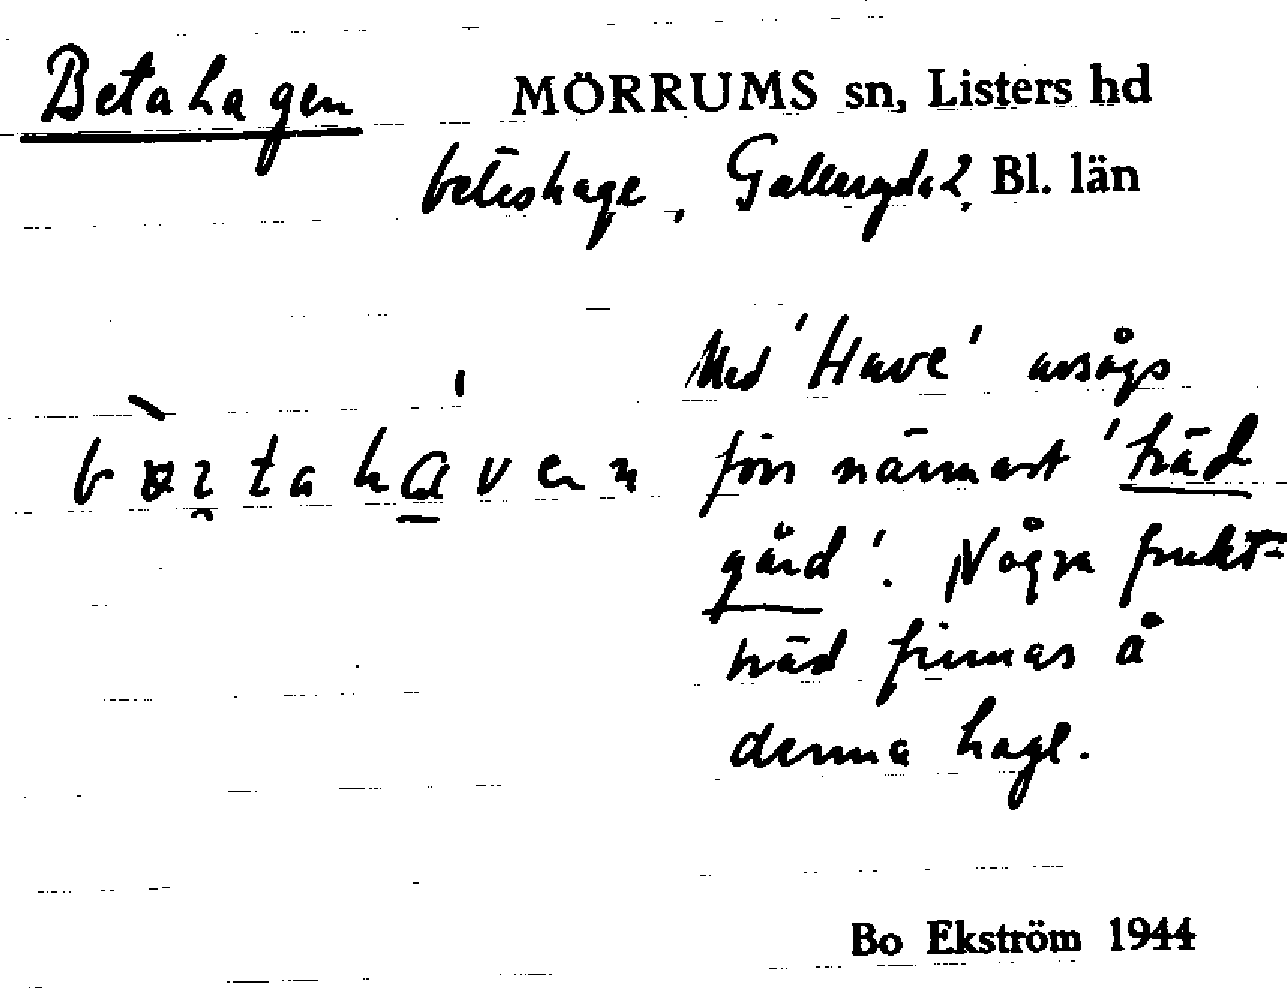 Betahagen MÖRRUMS sn, Listers hd
beteshage, Galleryda 2, Bl. län
Med 'Have' avsågs
förr närmast 'träd
gård'. Några frukt-
träd finnas å
denna hage.
Bo Ekström 1944